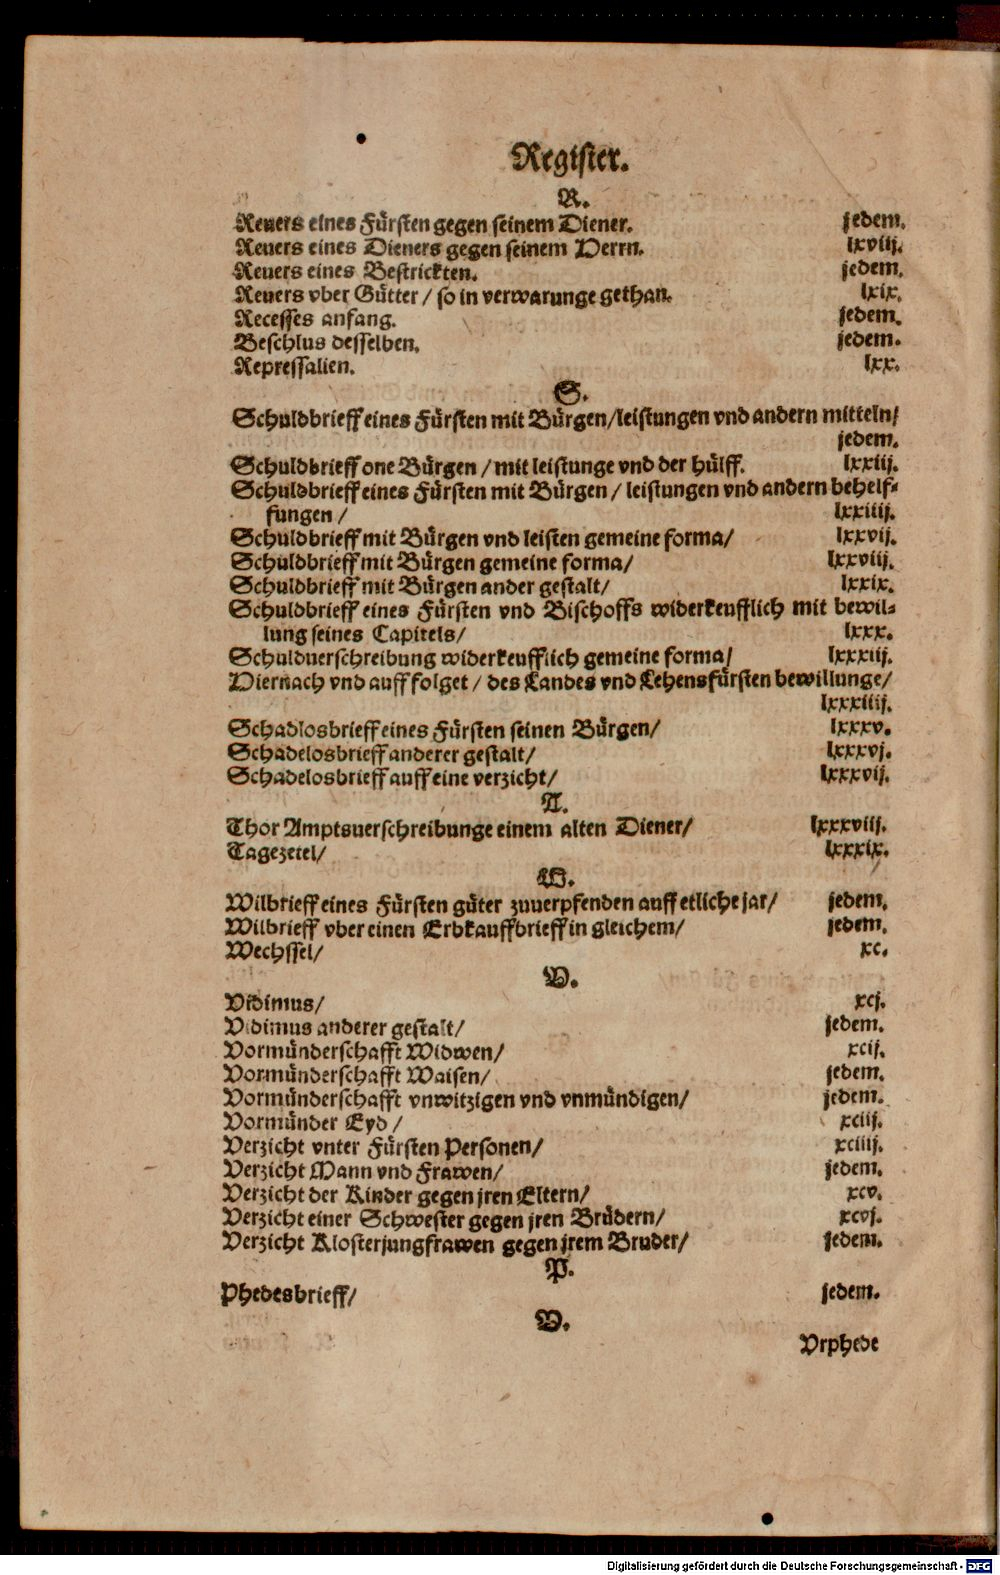 Register.
R.
Reuers eines Fürsten gegen seinem Diener. jedem.
Reuers eines Dieners gegen seinem Herrn. lxviij.
Reuers eines Bestrickten. jedem.
Reuers vber Gütter / so in verwarunge gethan. lxix.
Recesses anfang. jedem.
Beschlus desselben. jedem.
Repressalien. lxx.
S.
Schuldbrieff eines Fürsten mit Bürgen/leistungen vnd andern mitteln/
jedem.
Schuldbrieff one Bürgen / mit leistunge vnd der hülff. lxxiij.
Schuldbrieff eines Fürsten mit Bürgen / leistungen vnd andern behelf-
fungen / lxxiiij.
Schuldbrieff mit Bürgen vnd leisten gemeine forma/ lxxvij.
Schuldbrieff mit Bürgen gemeine forma/ lxxviij.
Schuldbrieff mit Bürgen ander gestalt/ lxxix.
Schuldbrieff eines Fürsten vnd Bischoffs widerkeufflich mit bewil-
lung seines Capitels/ lxxx.
Schulduerschreibung widerkeufflich gemeine forma/ lxxxiij.
Hiernach vnd auff folget / des Landes vnd Lehensfürsten bewillunge/
lxxxiiij.
Schadlosbrieff eines Fürsten seinen Bürgen/ lxxxv.
Schadelosbrieff anderer gestalt/ lxxxvj.
Schadelosbrieff auff eine verzicht/ lxxxvij.
T.
Thor Amptsuerschreibunge einem alten Diener/ lxxxviij.
Tagezetel/ lxxxix.
W.
Wilbrieff eines Fürsten güter zuuerpfenden auff etliche jar/ jedem.
Wilbrieff vber einen Erbkauffbrieff in gleichem/ jedem.
Wechssel/ xc.
V.
Vidimus/ xcj.
Vidimus anderer gestalt/ jedem.
Vormünderschafft Widwen/ xcij.
Vormünderschafft Waisen/ jedem.
Vormünderschafft vnwitzigen vnd vnmündigen/ jedem.
Vormünder Eyd / xciij.
Verzicht vnter Fürsten Personen/ xciiij.
Verzicht Mann vnd Frawen/ jedem.
Verzicht der Kinder gegen jren Eltern/ xcv.
Verzicht einer Schwester gegen jren Brüdern/ xcvj.
Verzicht Klosterjungfrawen gegen jrem Bruder/ jedem.
P.
Phedesbrieff/ jedem.
V.
Vrphede
Digitalisierung gefördert durch die Deutsche Forschungsgemeinschaft - DFG